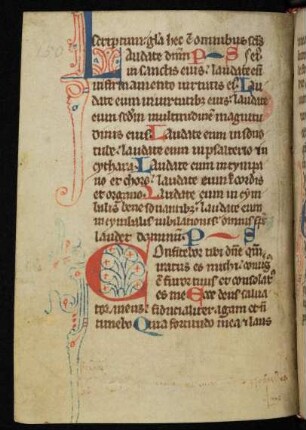 scriptum. gla hec ē omnibus scīs
Laudate dnm P S ei
in sanctis eius. laudate eū
in firmamento uirtutis ei. Lau
date eum in uirtutibz eius. laudate
eum scdm multitudinē magnitu
dinis eius. Laudate eum in sono
tube. laudate eum in psalterio et
cythara. Laudate eum in tympa
no et choro. laudate eum ī cordis
et organo. Laudate eum in cym
balis bene sonantibz. laudate eum
in cymbalis iubilationis omnis sps
laudet dominum. P S
Confitebor tibi dne qm
iratus es michi. conuer
sus ē furor tuus et consolat
es me Ecce deus salua
tor meus. fiducialiter agam et n̄
timebo Quia fortitudo mea et laus